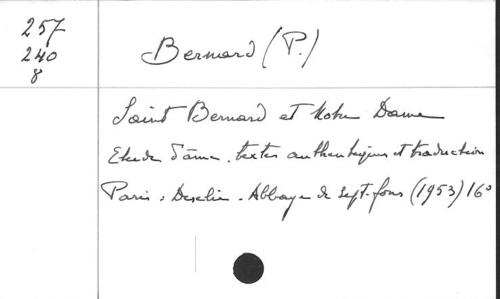 257
240
8
Bernard (P.)
Saint Bernard et Notre Dame
Etude d'âme. textes authentiques et traduction
Paris : Desclée. Abbaye de Sept-fons (1953) 16°